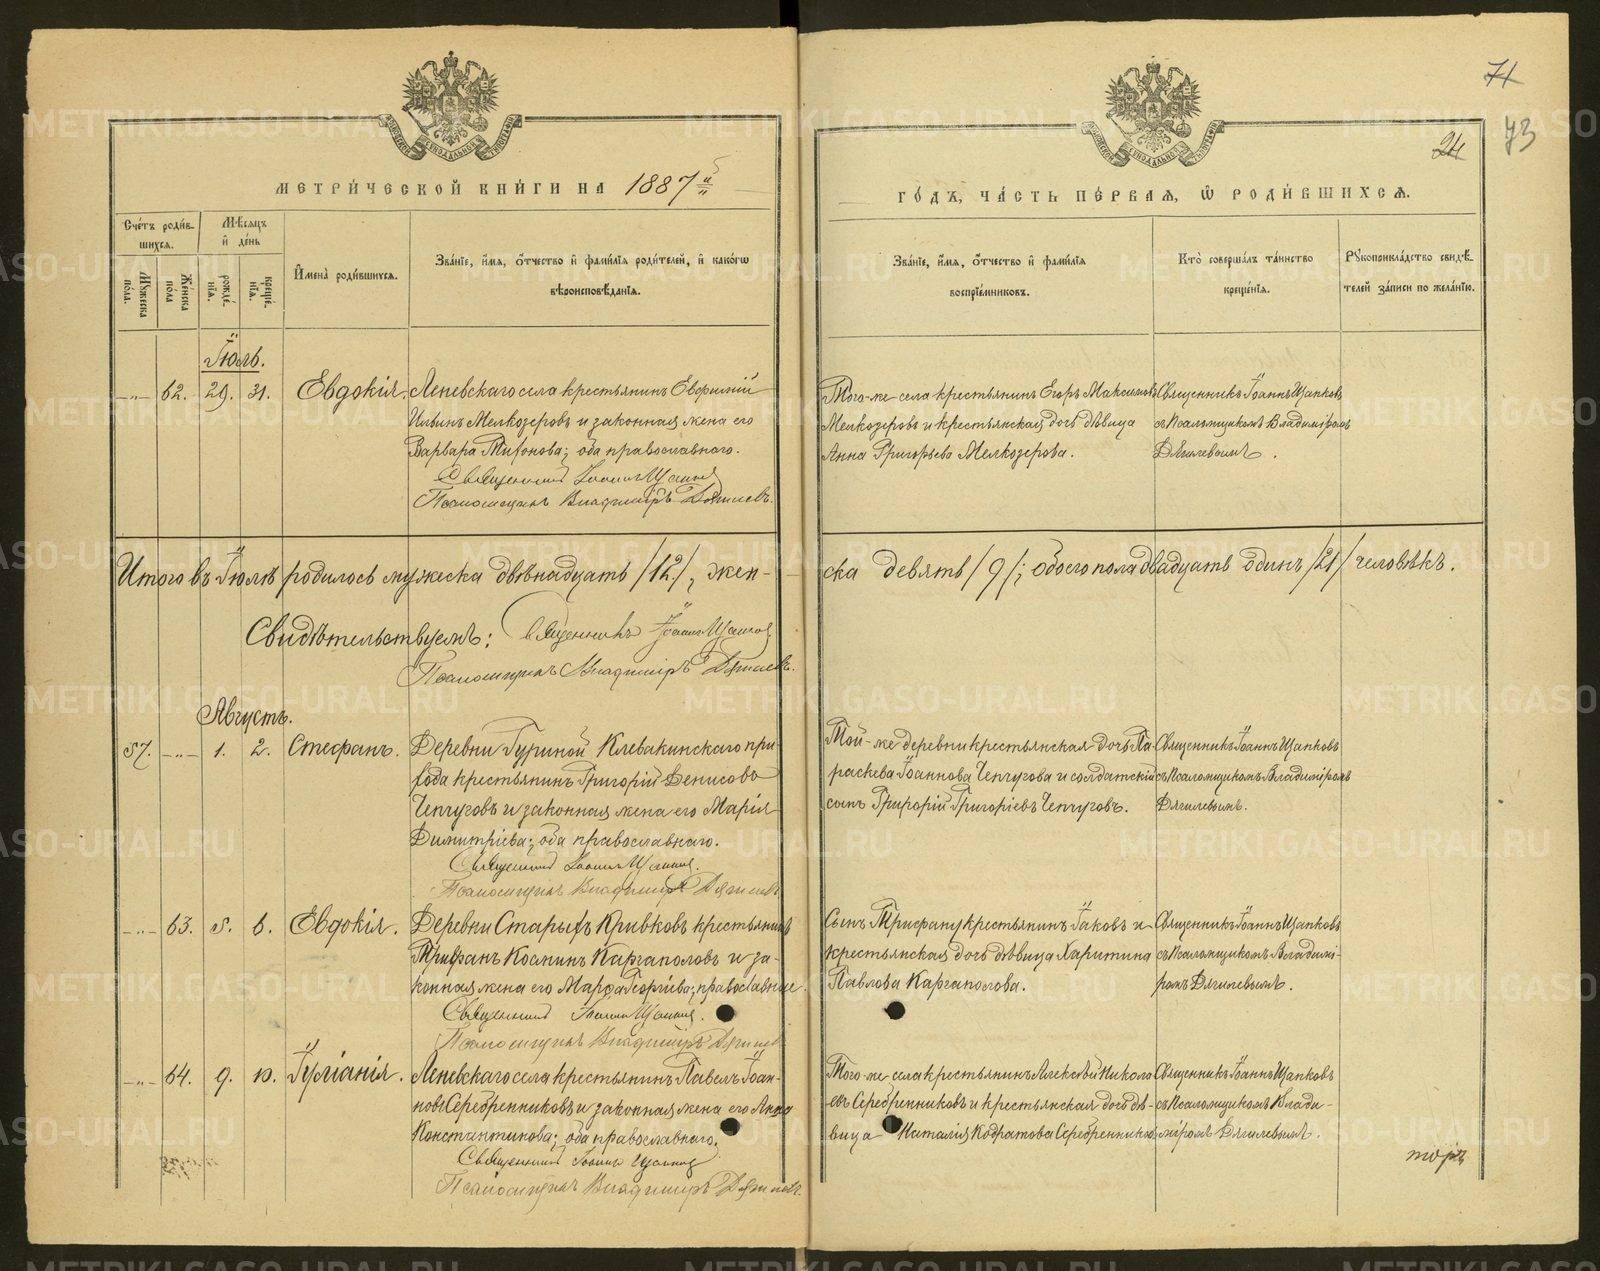 71
24
73
МЕТРИ́ЧЕСКОЙ КНИ́ГИ НА 1887й
ГО́ДЪ, ЧА́СТЬ ПЕ́РВАЯ, Ѡ РОДИ́ВШИХСЯ.
Сче́тъ роди́в-
шихся.
Мѣсяцъ
и де́нь
Му́жеска по́ла.
Же́нска по́ла
рожде́-
нїя.
креще́-
нїя.
Имена̀ роди́вшихся.
Зва́нїе, и́мя, о́тчество и фами́лїя роди́телей, и како́гѡ
вѣроисповѣ́данїя.
Зва́нїе, и́мя, о́тчество и фами́лїя
воспрїе́мниковъ.
Кто̀ соверша́лъ та́инство
креще́нїя.
Рукоприкла́дство свидѣ́-
телей за́писи по жела́нїю.
Іюль.
-"- 62. 29. 31. Евдокія. Леневскаго села крестьянинъ Евфимій
Ильинъ Мелкозеровъ и законная жена его
Варвара Тифонова; оба православнаго.
Священникъ Іоаннъ Щапковъ
Псаломщикъ Владиміръ Дягилевъ.
Того-же села крестьянинъ Егоръ Максимовъ
Мелкозеровъ и крестьянская дочь дѣвица
Анна Григорьева Мелкозерова.
Священникъ Іоаннъ Щапковъ
съ Псаломщикомъ Владиміромъ
Дягилевымъ.
Итого въ Іюлѣ родилось мужеска двѣнадцать /12/, жен-
ска девять /9/; обоего пола двадцать одинъ /21/ человѣкъ.
Свидѣтельствуемъ: Священникъ Іоаннъ Щапковъ
Псаломщикъ Владиміръ Дягилевъ.
Августъ.
57. -"- 1. 2. Стефанъ. Деревни Гуриной Клевакинскаго при-
хода крестьянинъ Григорій Денисовъ
Чепчуговъ и законная жена его Марія
Димитріева; оба православнаго.
Священникъ Іоаннъ Щапковъ.
Псаломщикъ Владиміръ Дягилевъ
Той-же деревни крестьянская дочь Па-
раскева Іоаннова Чепчугова и солдатскій
сынъ Григорій Григоріевъ Чепчуговъ.
Священникъ Іоаннъ Щапковъ
съ Псаломщикомъ Владиміромъ
Дягилевымъ.
-"- 63. 5. 6. Евдокія. Деревни Старыхъ Кривковъ крестьянинъ
Трифанъ Косминъ Каргаполовъ и за-
конная жена его Марфа Георгіева; православные.
Священникъ Іоаннъ Щапковъ.
Псаломщикъ Владиміръ Дягилевъ
Сынъ Трифану крестьянинъ Іаковъ и
крестьянская дочь дѣвица Харитина
Павлова Каргаполова.
Священникъ Іоаннъ Щапковъ
съ Псаломщикомъ Владимі-
ромъ Дягилевымъ.
-"- 64. 9. 10. Іуліанія. Леневскаго села крестьянинъ Павелъ Іоан-
новъ Серебренниковъ и законная жена его Анна
Константинова; оба православнаго.
Священникъ Іоаннъ Щапковъ
Псаломщикъ Владиміръ Дягилевъ.
Того-же села крестьянинъ Алексѣй Никола-
евъ Серебренниковъ и крестьянская дочь дѣ-
вица Наталія Кодратова Серебренникова
Священникъ Іоаннъ Щапковъ
съ Псаломщикомъ Влади-
міромъ Дягилевымъ.
торъ
METRIKI.GASO-URAL.RU